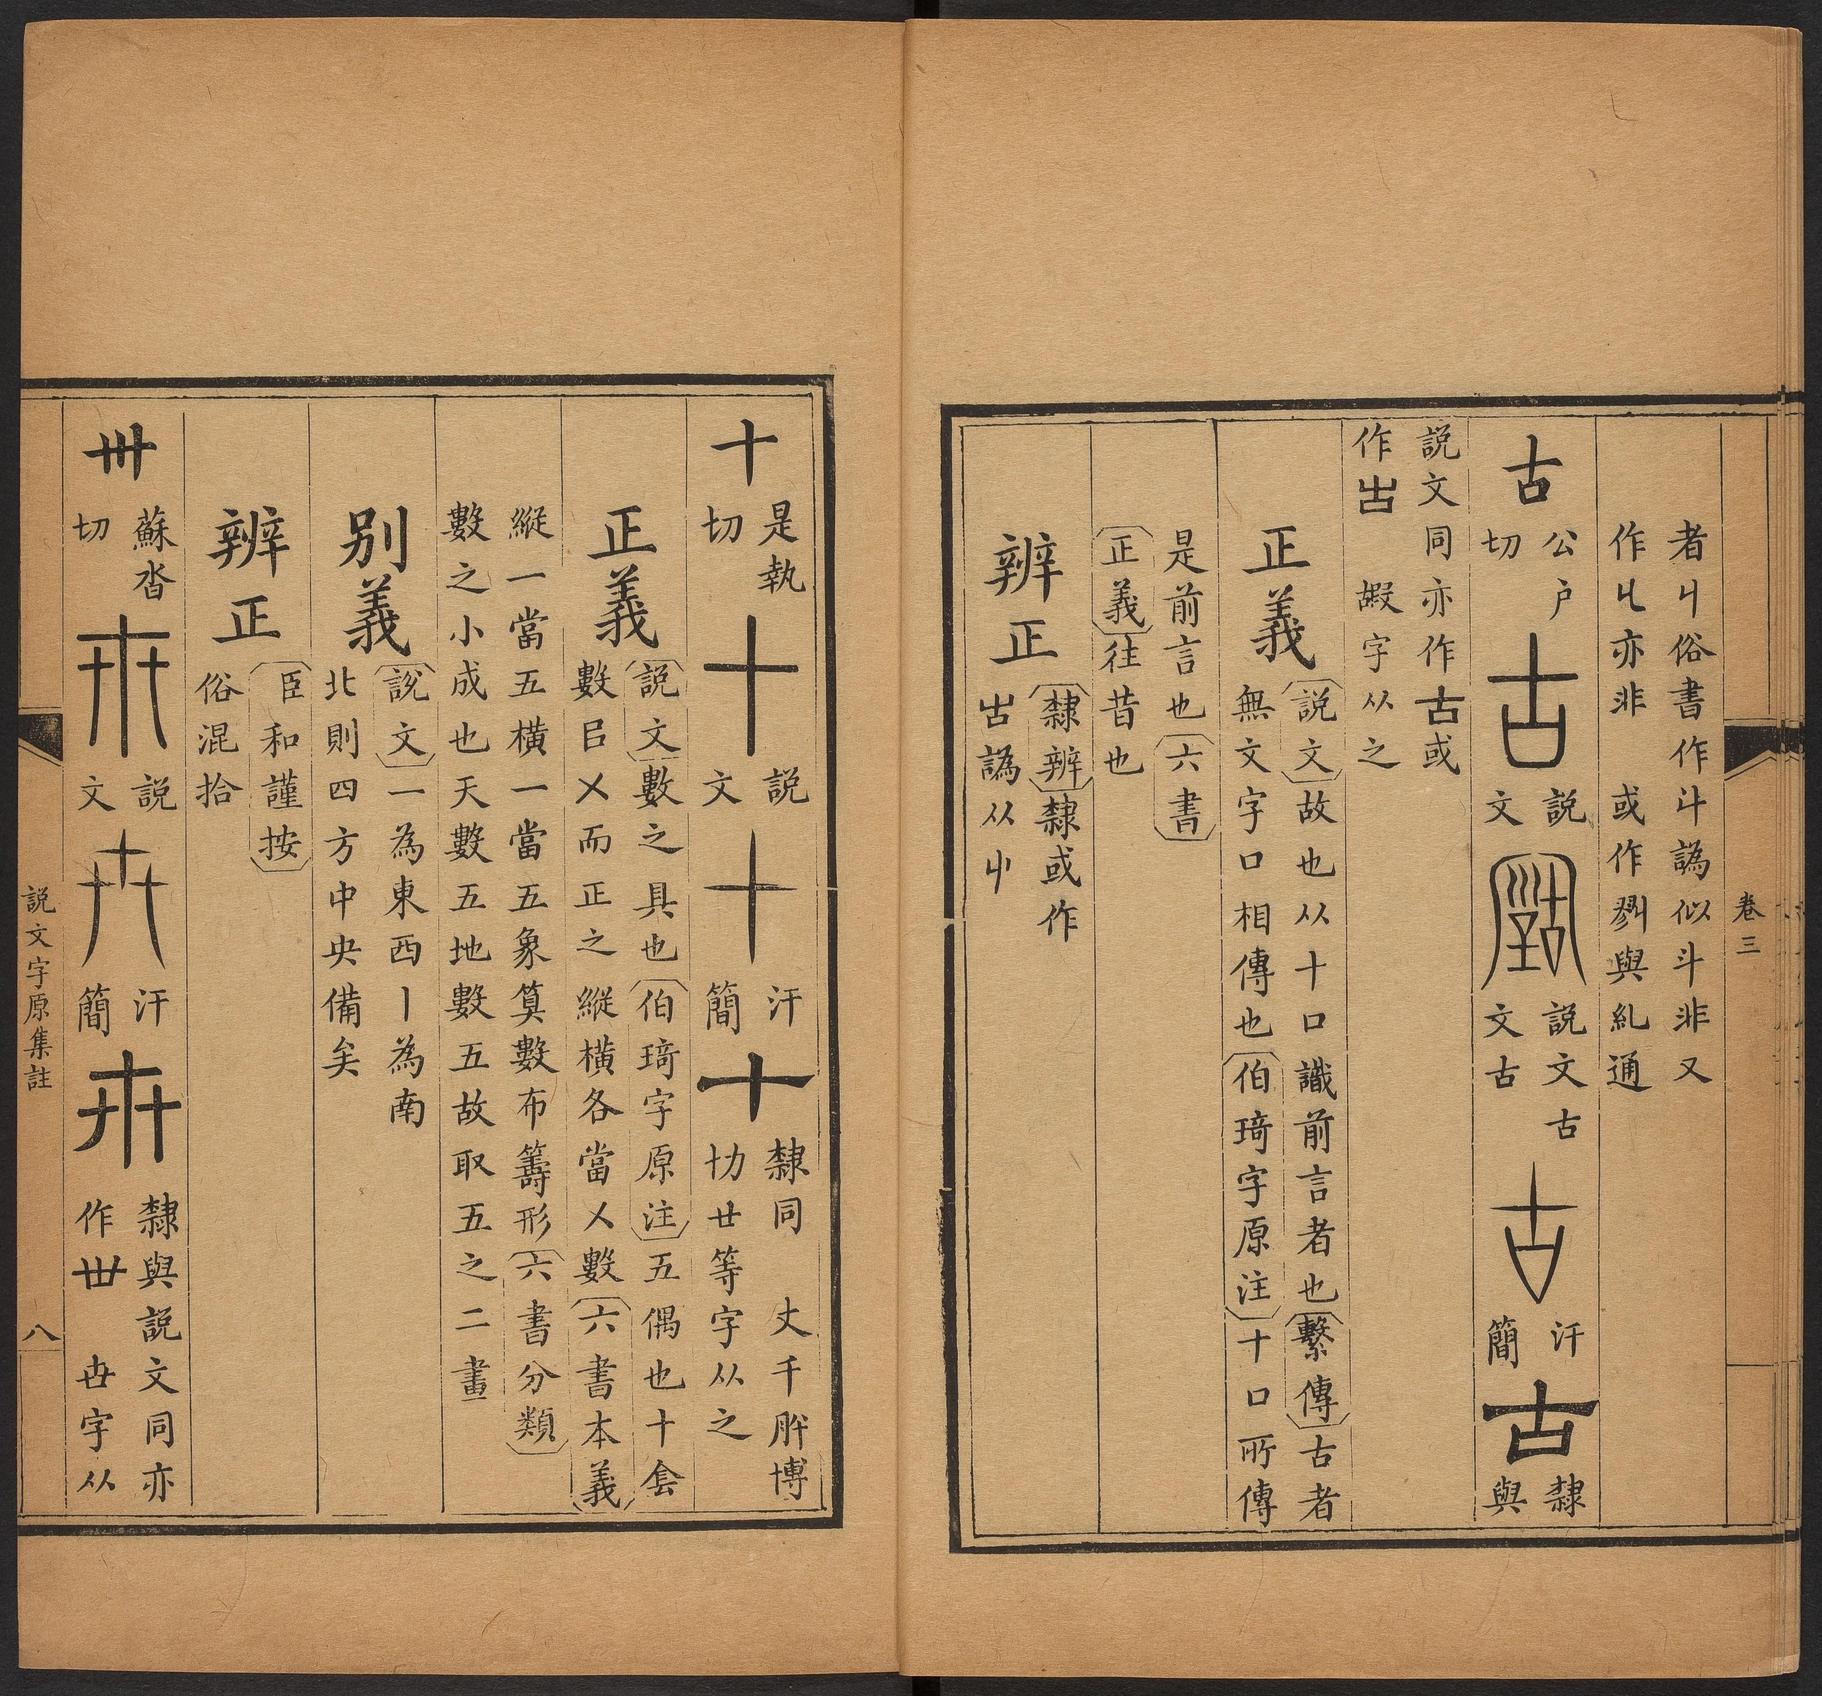 卷三
者丩俗書作斗譌似斗非又
作㔿亦非　或作剹與糺通
古 公户切 古 說文 𠖠 說文古文古 古 汗簡 古 隸與
說文同亦作古或
作𠙶　嘏字从之
正義 說文故也从十口識前言者也繫傳古者
無文字口相傳也伯琦字原注十口所傳
是前言也六書
正義往昔也
辨正 隸辨隸或作
𠙶譌从屮
十 是執切 十 說文 十 汗簡 十 隸同　丈千肸博
協廿等字从之
正義 說文數之具也伯琦字原注五偶也十套
數㠯㐅而正之縱橫各當㐅數六書本義
縱一當五橫一當五象算數布籌形六書分類
數之小成也天數五地數五故取五之二畫
別義 說文一為東西丨為南
北則四方中央備矣
辨正 臣和謹按
俗混拾
卅 蘇沓切 卅 說文 卅 汗簡 卅 隸與說文同亦
作卋　世字从
說文字原集註
八